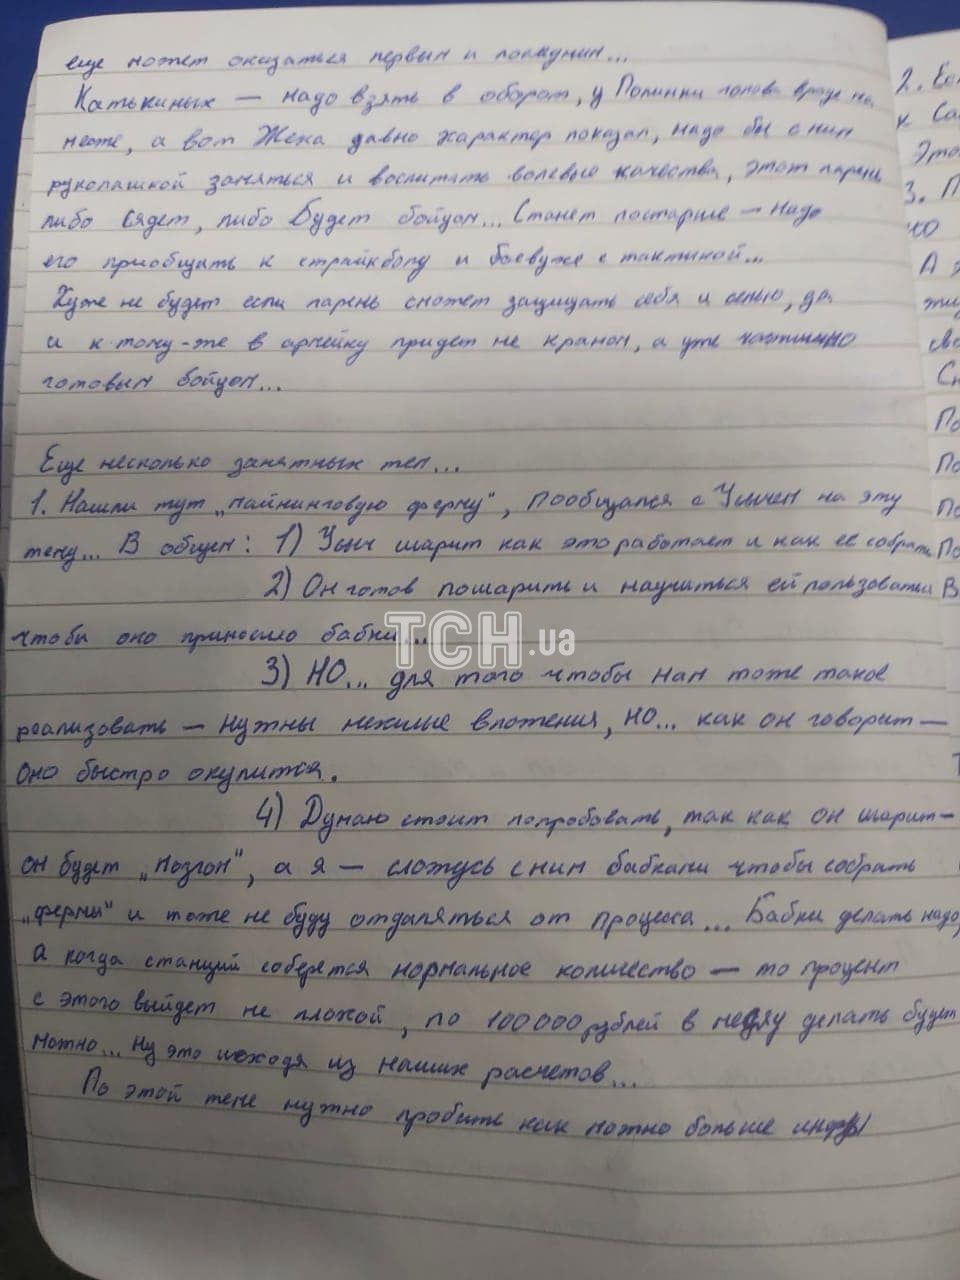 еще может оказаться первым и последним...
Катькиных — надо взять в оборот, у Полинки голова вроде на
месте, а вот Жека давно характер показал, надо бы с ним
рукопашкой заняться и воспитать волевые качества, этот парень
либо сядет, либо будет бойцом... Станет постарше — надо
его приобщить к страйкболу и боевухе с тактикой...
Хуже не будет если парень сможет защищать себя и семью, да
и к тому-же в армейку придет не краном, а уже частично
готовым бойцом...
Еще несколько занятных тем...
1. Нашли тут „майнинговую ферму", пообщался с Усычем на эту
тему... В общем: 1) Усыч шарит как это работает и как ее собрать
2) Он готов пошарить и научиться ей пользоваться
чтобы оно приносило бабки...
3) НО... для того чтобы нам тоже такое
реализовать — нужны нехилые вложения, но... как он говорит —
оно быстро окупится.
4) Думаю стоит попробовать, так как он шарит —
он будет „мозгом", а я — сложусь с ним бабками чтобы собрать
„фермы" и тоже не буду отдаляться от процесса... Бабки делать надо,
а когда станций соберется нормальное количество — то процент
с этого выйдет не плохой, по 100 000 рублей в неделю делать будет
можно... Ну это исходя из наших расчетов...
По этой теме нужно пробить как можно больше инфы
2.
к
Это
3. П
но
А
Сн
По
По
По
По
В
ТСН.ua